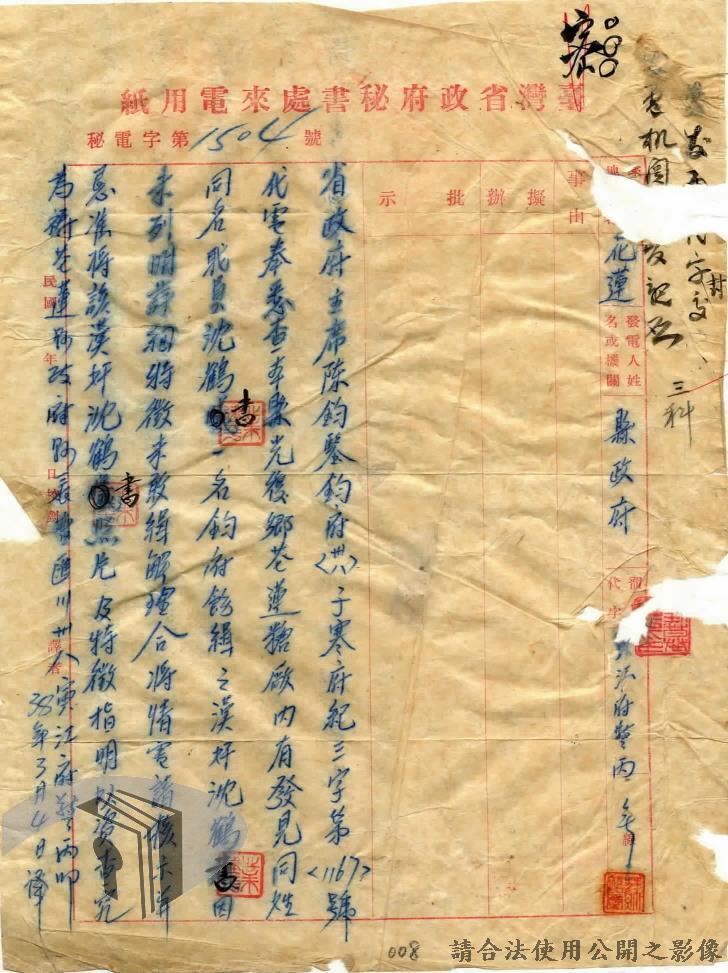 密
臺灣省政府秘書處來電用紙
秘電字第1504號
事由
擬辦
批示
花蓮
發電人姓名或機關
縣政府
三科
省政府主席陳鈞鑒鈞府<卅八>子寒府紀三字第<1167>號
代電奉悉查本縣光復鄉花蓮糖廠內有發見同姓
同名職員沈鶴書一名鈞府飭緝之漢奸沈鶴書因
未列明詳細特徵未敢緝解理合將情電請核示并
懇准將該漢奸沈鶴書照片及特徵指明以資查究
為禱花蓮縣政府縣長
民國 年 月 日
譯者
38年3月4日譯
008
請合法使用公開之影像